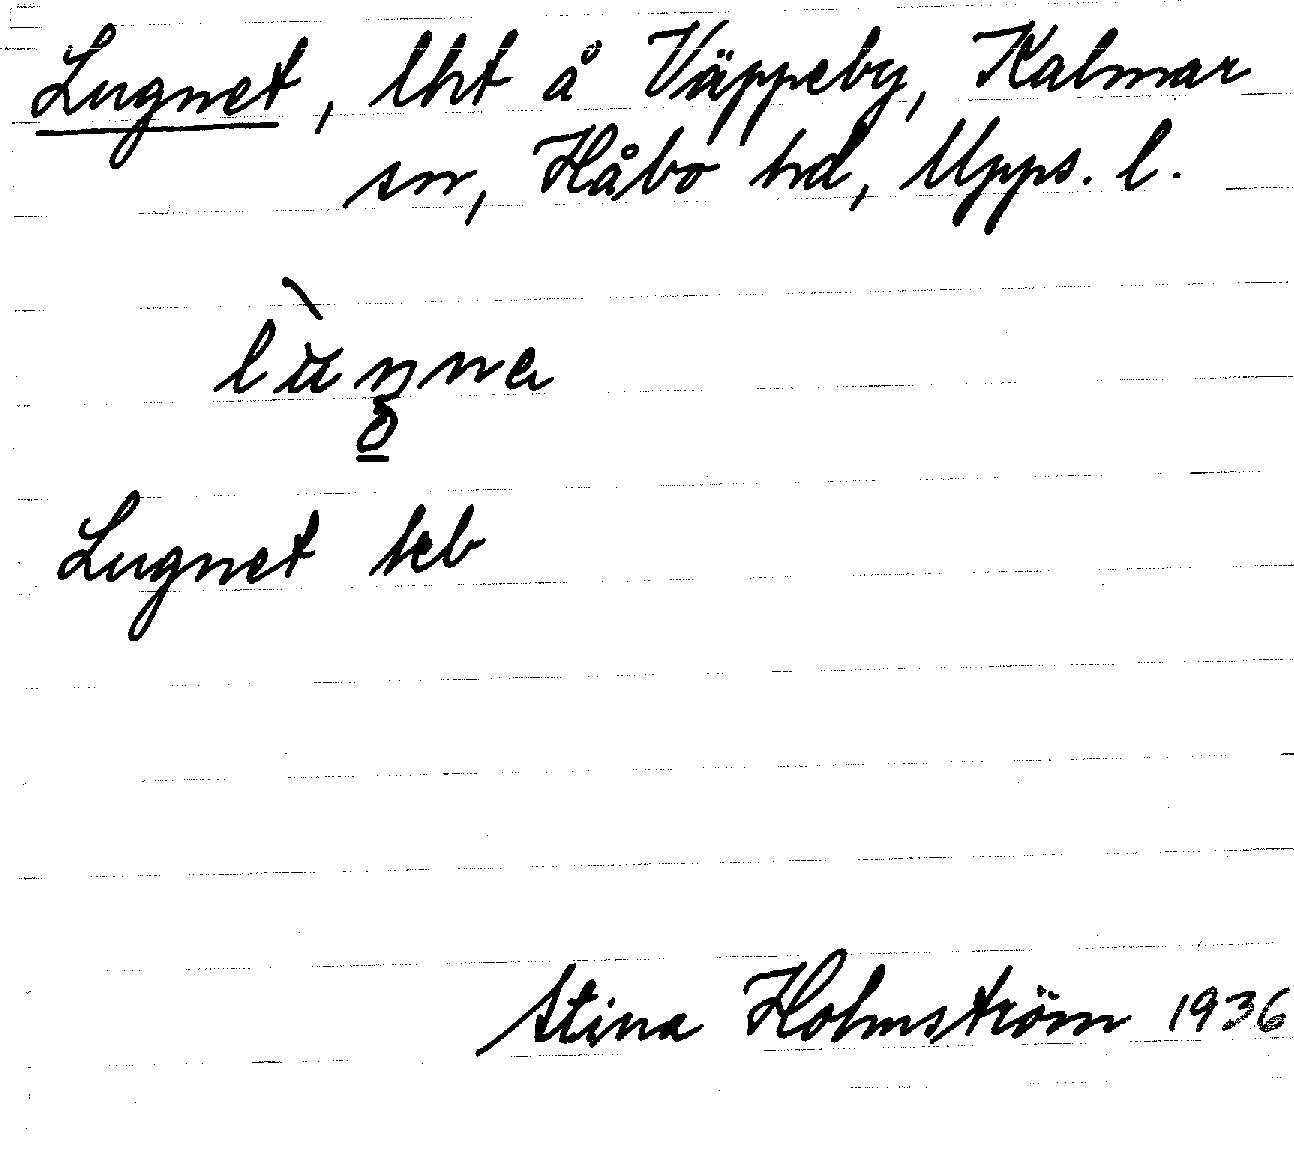 Lugnet, lht å Väppeby, Kalmar
sn, Håbo hd, Upps. l.
Lugnet keb
Stina Holmström 1936